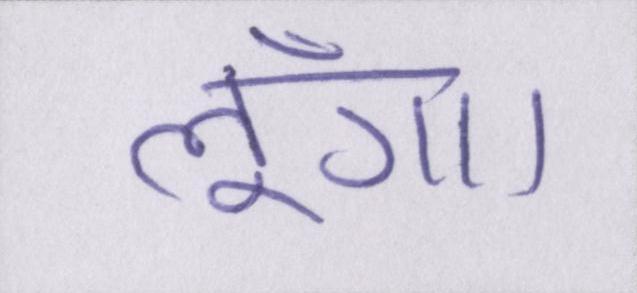 लूँगा।